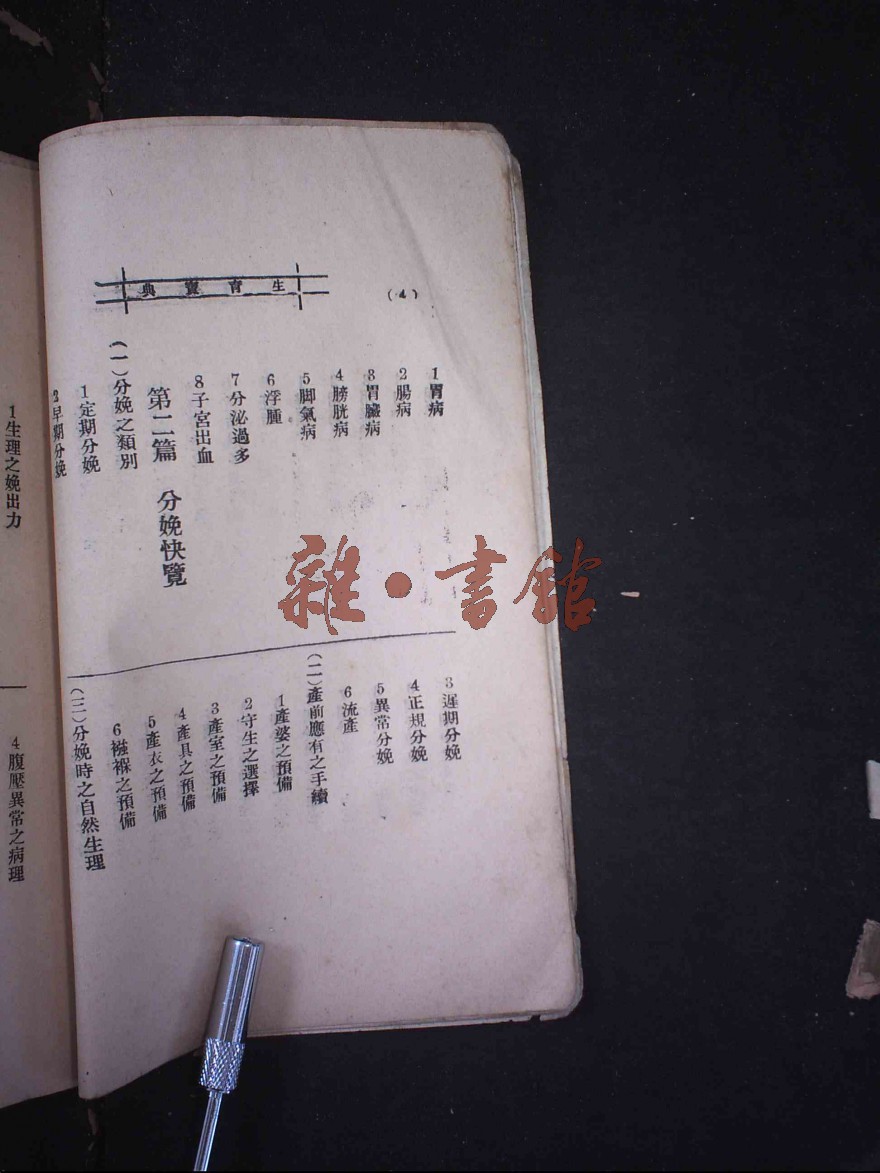 生育寶典
(4)
1胃病
2腸病
3胃臟病
4膀胱病
5脚氣病
6浮腫
7分泌過多
8子宮出血
第二篇 分娩快覽
(一)分娩之類別
1定期分娩
2早期分娩
3遲期分娩
4正規分娩
5異常分娩
6流產
(二)產前應有之手續
1產婆之預備
2守生之選擇
3產室之預備
4產具之預備
5產衣之預備
6襁褓之預備
(三)分娩時之自然生理
1生理之娩出力
4腹壓異常之病理
雜·書館